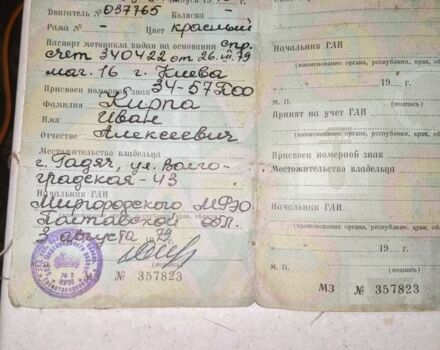 Двигатель № 037765 Коляска -
Рама № - Цвет красный
Паспорт мотоцикла выдан на основании спр.
счет 340422 от 26.VII.79
маг. 16 г. Киева
Присвоен номерной знак 34-57
Фамилия Кирпа
Имя Иван
Отчество Алексеевич
Местожительство владельца
г. Гадяч, ул. Волго-
градская-43
Начальник ГАИ
Миргородского МРЭО
Полтавской обл.
3 августа 79
М. П. (подпись)
МЗ № 357823
19 г.
Начальник ГАИ
(наименование органа, республики, края, области)
М. П. (подпись)
Принят на учет ГАИ
(наименование органа, республики, края, области)
Присвоен номерной знак
Местожительство владельца
Начальник ГАИ
(наименование органа, республики, край, обл.)
19 г.
М. П. (подпись)
МЗ № 357823